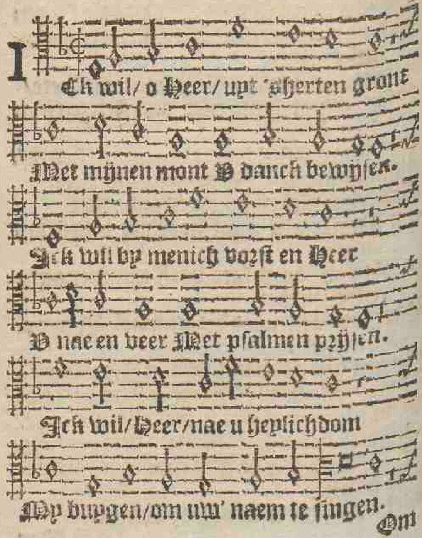 ICk wil/ o Heer/ uyt 'sherten gront
Met mijnen mont V danck bewijsen.
Ick wil by menich vorst en Heer
V nae en veer Met psalmen prijsen.
Ick wil/Heer/nae u heylichdom
My buygen/om uw' naem te singen.
Om